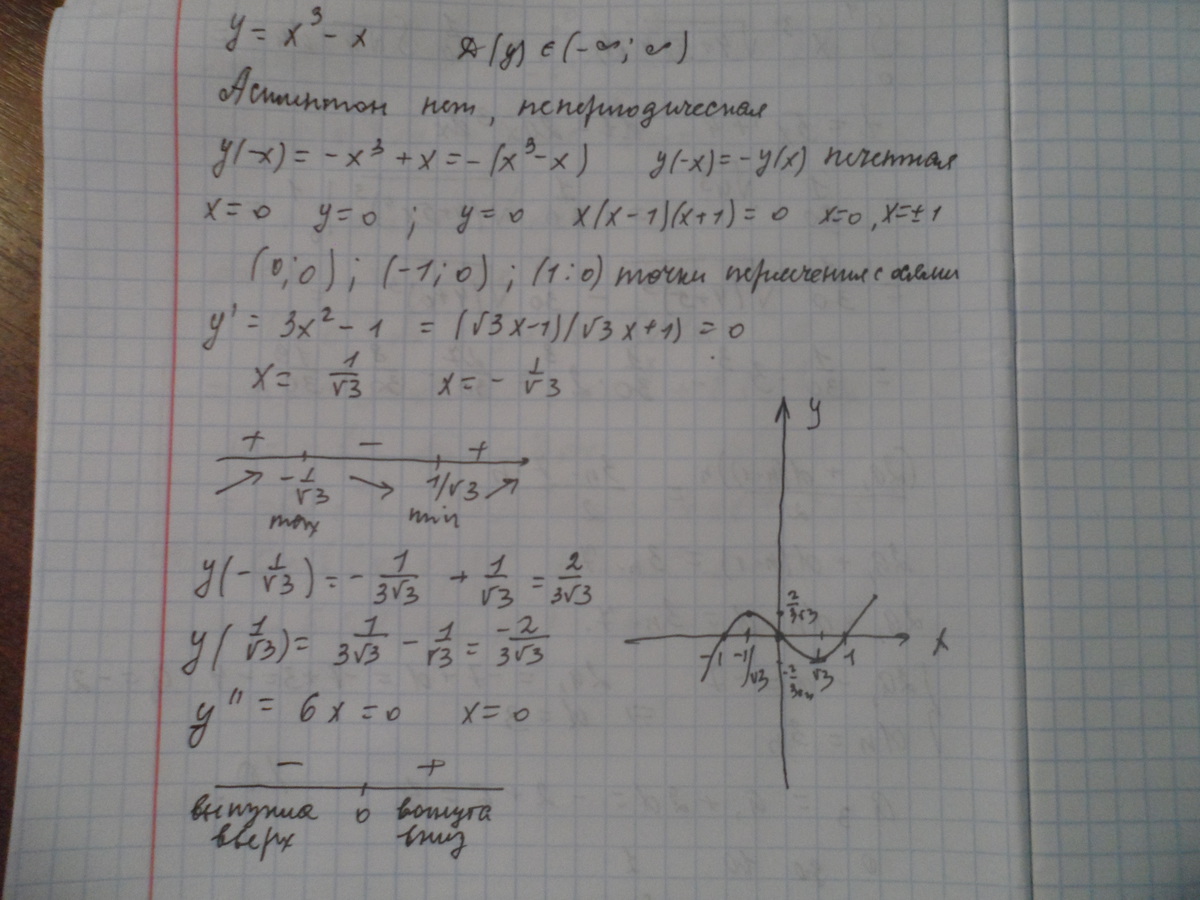 y = x³ - x   D(y) ∈ (-∞; ∞)
Асимптот нет, непериодическая
y(-x) = -x³ + x = -(x³ - x)   y(-x) = -y(x) нечетная
x = 0   y = 0 ;   y = 0   x(x-1)(x+1) = 0   x=0, x=±1
(0;0) ; (-1;0) ; (1:0) точки пересечения с осями
y' = 3x² - 1 = (√3x-1)(√3x+1) = 0
x = 1/√3   x = - 1/√3
+ - +
-1/√3   1/√3
max   min
y(-1/√3) = - 1/3√3 + 1/√3 = 2/3√3
y(1/√3) = 1/3√3 - 1/√3 = -2/3√3
y'' = 6x = 0   x = 0
- +
выпукла   0   вогнута
вверх   вниз
y
2/3√3
x
-1   -1/√3   √3   1